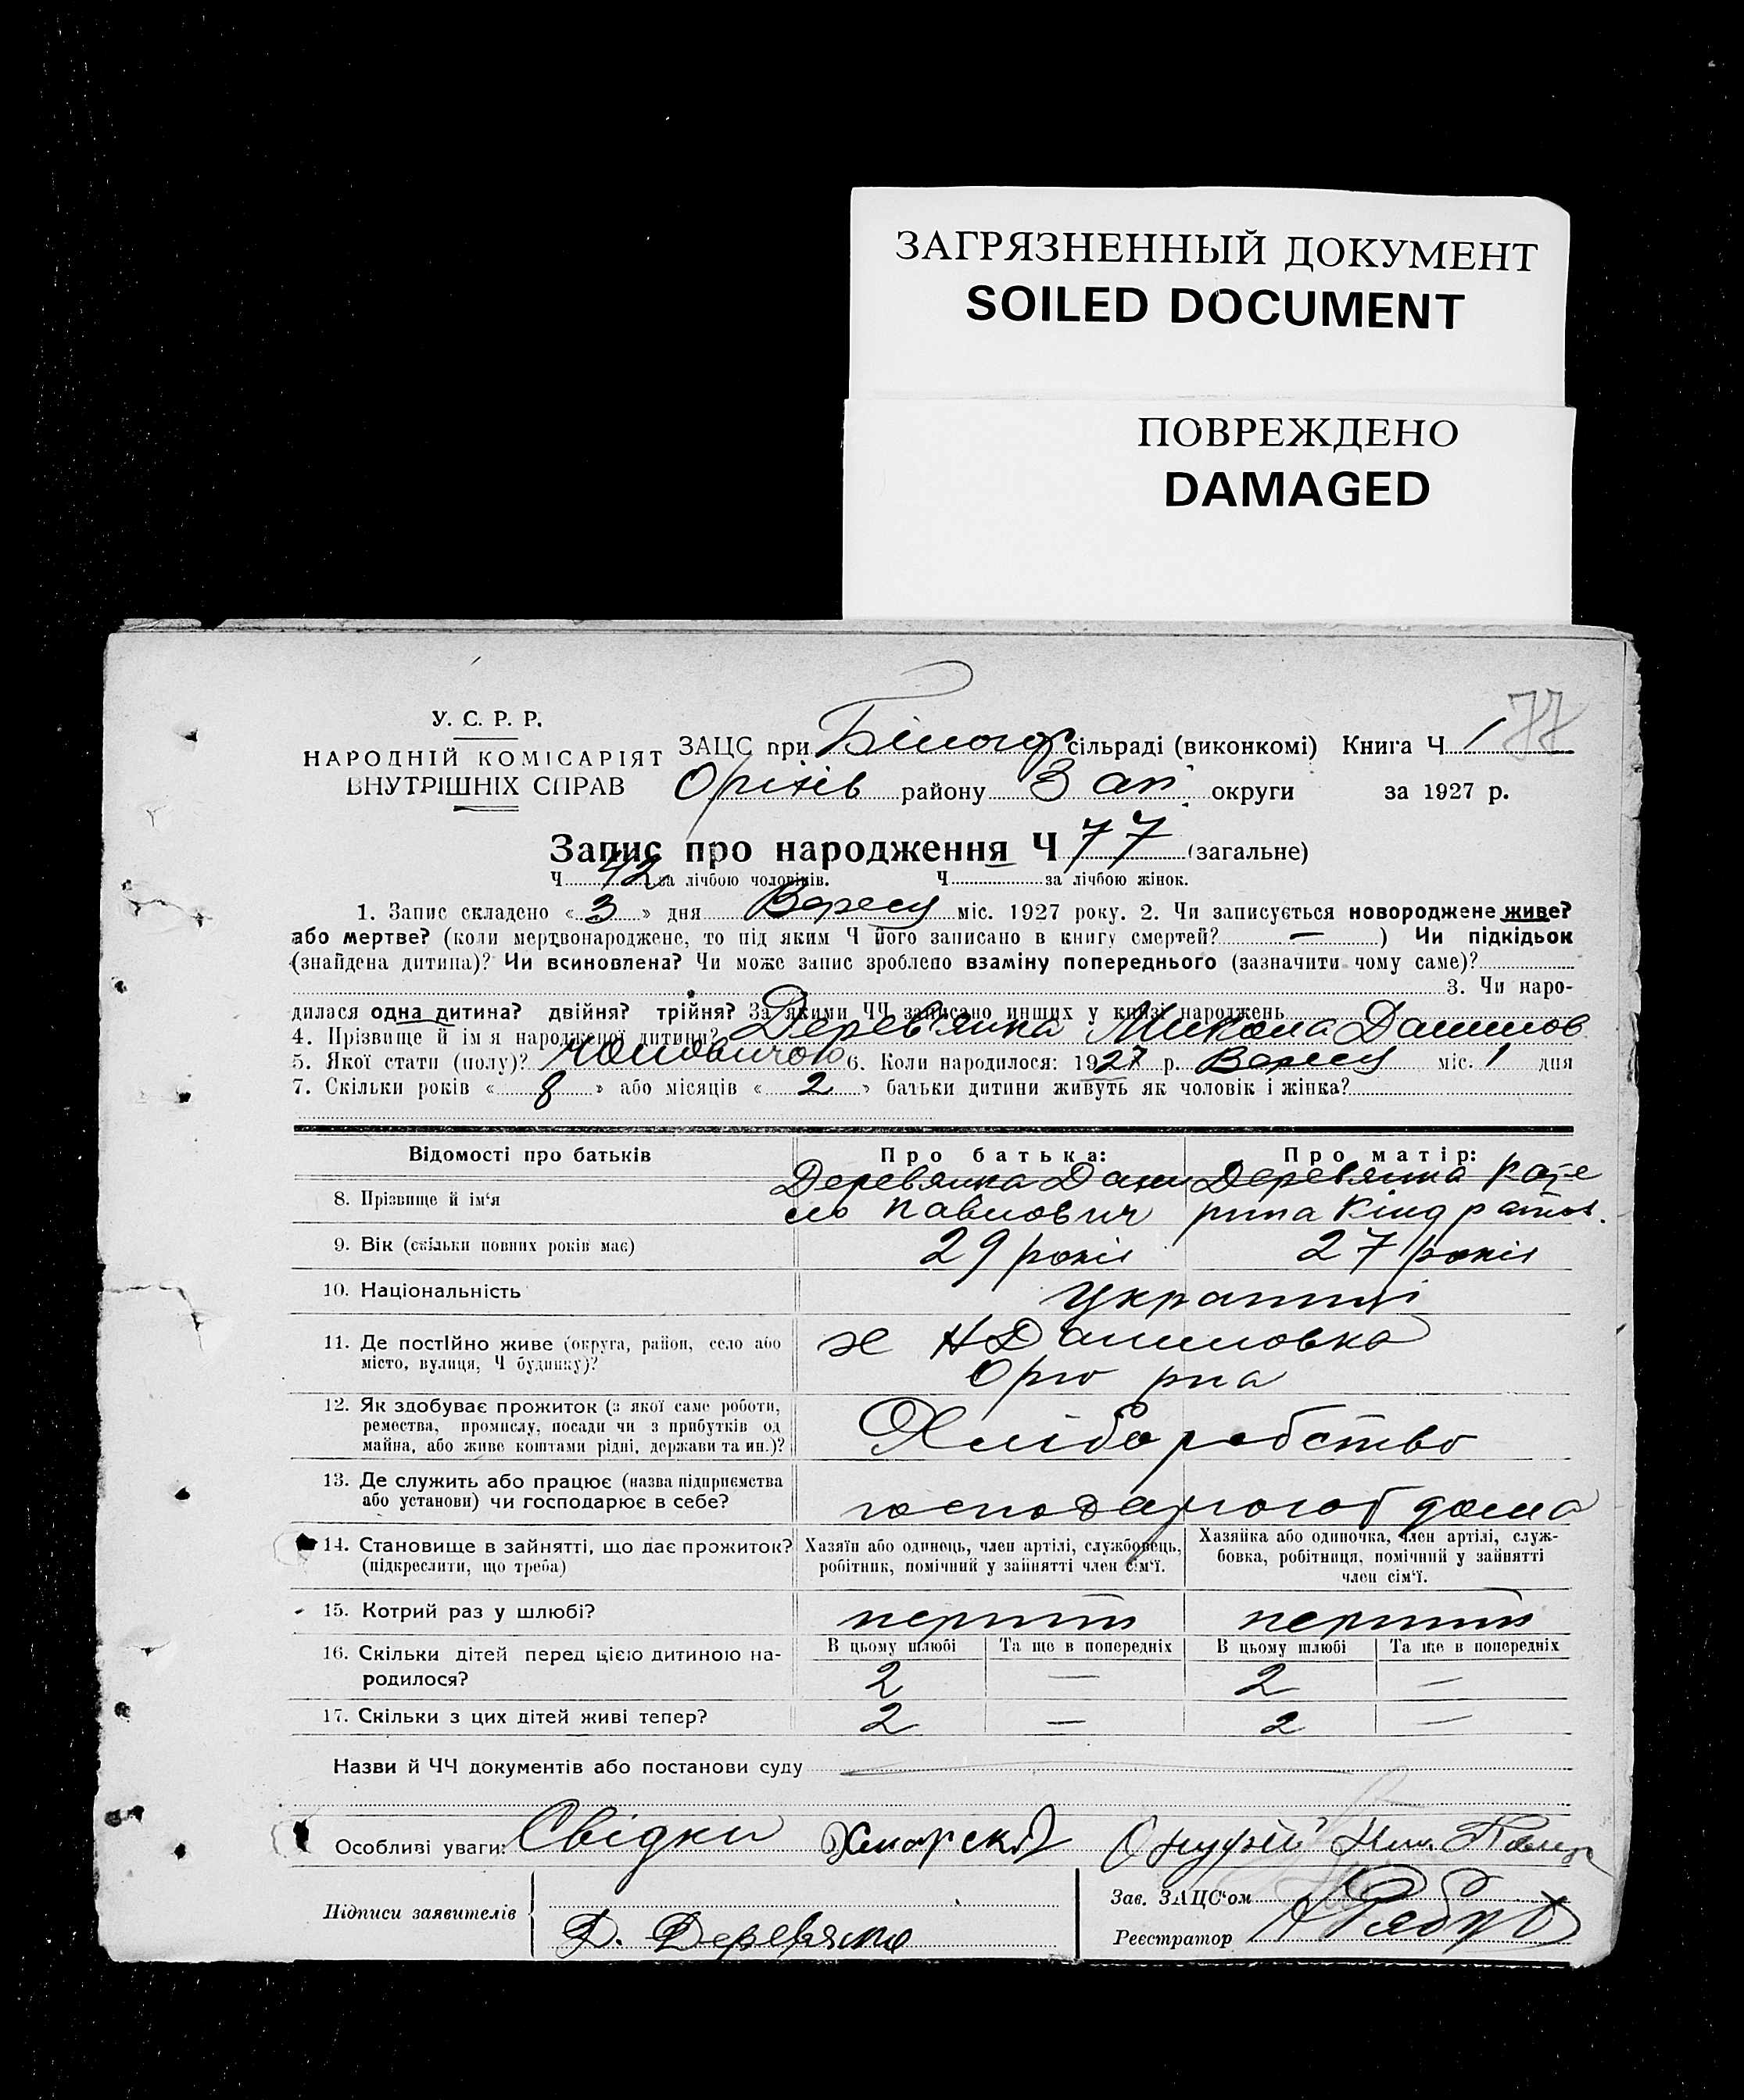 ЗАГРЯЗНЕННЫЙ ДОКУМЕНТ
SOILED DOCUMENT
ПОВРЕЖДЕНО
DAMAGED
77
У. С. Р. Р.
НАРОДНІЙ КОМІСАРІЯТ
ВНУТРІШНІХ СПРАВ
ЗАЦС при Білогор сільраді (виконкомі) Книга Ч 1
Оріхів району Зап. округи за 1927 р.
Запис про народження Ч 77 (загальне)
Ч 42 за лічбою чоловіків. Ч за лічбою жінок.
1. Запис складено « 3 » дня Вересн міс. 1927 року. 2. Чи записується новороджене живе?
або мертве? (коли мертвонароджене, то під яким Ч його записано в книгу смертей? — ) Чи підкідьок
(знайдена дитина)? Чи всиновлена? Чи може запис зроблено взаміну попереднього (зазначити чому саме)?
3. Чи наро-
дилася одна дитина? двійня? трійня? За якими ЧЧ записано инших у книзі народжень
4. Прізвище й ім'я народженої дитини? Дерев'янка Микола Данилов
5. Якої стати (полу)? чоловічого 6. Коли народилося: 1927 р. Вересн міс. 1 дня
7. Скільки років « 8 » або місяців « 2 » батьки дитини живуть як чоловік і жінка?
Відомості про батьків Про батька: Про матір:
8. Прізвище й ім'я Деревянка Дани Деревянка Кате
ло Павлович рина Кіндратов.
9. Вік (скільки повних років має) 29 років 27 років
10. Національність Українці
11. Де постійно живе (округа, район, село або
місто, вулиця, Ч будинку)?
х Н Даниловка
Оріх рна
12. Як здобуває прожиток (з якої саме роботи,
ремества, промислу, посади чи з прибутків од
майна, або живе коштами рідні, держави та ин.)?
Хліборобство
13. Де служить або працює (назва підприємства
або установи) чи господарює в себе?
господарюють дома
14. Становище в зайнятті, що дає прожиток?
(підкреслити, що треба)
Хазяїн або одинець, член артілі, службовець,
робітник, помічний у зайнятті член сім'ї.
Хазяйка або одиночка, член артілі, служ-
бовка, робітниця, помічний у зайнятті
член сім'ї.
15. Котрий раз у шлюбі? перший перший
В цьому шлюбі Та ще в попередніх В цьому шлюбі Та ще в попередніх
16. Скільки дітей перед цією дитиною на-
родилося?
2 — 2 —
17. Скільки з цих дітей живі тепер? 2 — 2 —
Назви й ЧЧ документів або постанови суду
Особливі уваги: Свідки Хмарский Онуфрій
Підписи заявителів
Д. Деревянко
Зав. ЗАЦС'ом
Реєстратор